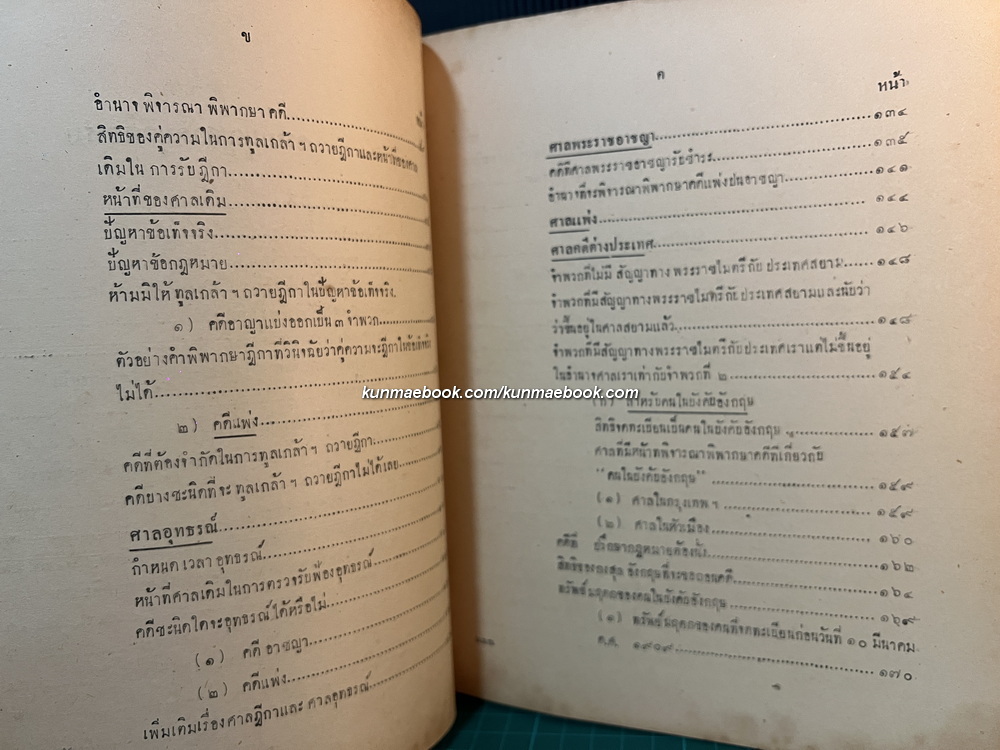 ข
อำนาจ พิจารณา พิพากษา คดี
สิทธิของคู่ความในการทูลเกล้า ฯ ถวายฎีกาและหน้าที่ของศาล
เดิมใน การรับฎีกา
หน้าที่ของศาลเดิม
ปัญหาข้อเท็จจริง
ปัญหาข้อกฎหมาย
ห้ามมิให้ ทูลเกล้า ฯ ถวายฎีกาในปัญหาข้อเท็จจริง
๑) คดีอาญาแบ่งออกเป็น ๓ จำพวก
ตัวอย่างคำพิพากษาฎีกาที่วินิจฉัยว่าคู่ความจะฎีกาในข้อเท็จจริง
ไม่ได้
๒) คดีแพ่ง
คดีที่ต้องจำกัดในการทูลเกล้า ฯ ถวายฎีกา
คดีบางชะนิดที่จะ ทูลเกล้า ฯ ถวายฎีกาไม่ได้เลย
ศาลอุทธรณ์
กำหนด เวลา อุทธรณ์
หน้าที่ศาลเดิมในการตรวจรับฟ้องอุทธรณ์
คดีชะนิดใดจะอุทธรณ์ได้หรือไม่
(๑) คดี อาชญา
(๒) คดีแพ่ง
เพิ่มเติมเรื่องศาลฎีกาและ ศาลอุทธรณ์
ค
หน้า
ศาลพระราชอาชญา ๑๓๔
คดีที่ศาลพระราชอาชญารับชำระ ๑๓๕
อำนาจที่จะพิจารณาพิพากษาคดีแพ่งปนอาชญา ๑๔๑
ศาลแพ่ง ๑๔๔
ศาลคดีต่างประเทศ ๑๔๖
จำพวกที่ไม่มี สัญญาทาง พระราชไมตรีกับ ประเทศสยาม ๑๔๘
จำพวกที่มีสัญญาทางพระราชไมตรีกับประเทศสยามและนับว่า
ว่าขึ้นอยู่ในศาลสยามแล้ว ๑๔๘
จำพวกที่มีสัญญาทางพระราชไมตรีกับประเทศเราแต่ไม่ขึ้นอยู่
ในอำนาจศาลเราเท่ากับจำพวกที่ ๒ ๑๕๔
(ก) สำหรับคนในบังคับอังกฤษ
สิทธิจดทะเบียนเป็นคนในบังคับอังกฤษ ๑๕๗
ศาลที่มีหน้าที่พิจารณาพิพากษาคดีที่เกี่ยวกับ
"คนในบังคับอังกฤษ" ๑๕๙
(๑) ศาลในกรุงเทพ ฯ ๑๕๙
(๒) ศาลในหัวเมือง ๑๖๐
คดีที่ ปรึกษากฎหมายต้องนั่ง ๑๖๒
สิทธิของกงสุล อังกฤษที่จะขอถอนคดี ๑๖๔
ทรัพย์มฤดกของคนในบังคับอังกฤษ ๑๖๙
(๑) ทรัพย์มฤดกของคนที่จดทะเบียนก่อนวันที่ ๑๐ มีนาคม
ค.ศ. ๑๙๐๙ ๑๗๐
kunmaebook.com/kunmaebook.com